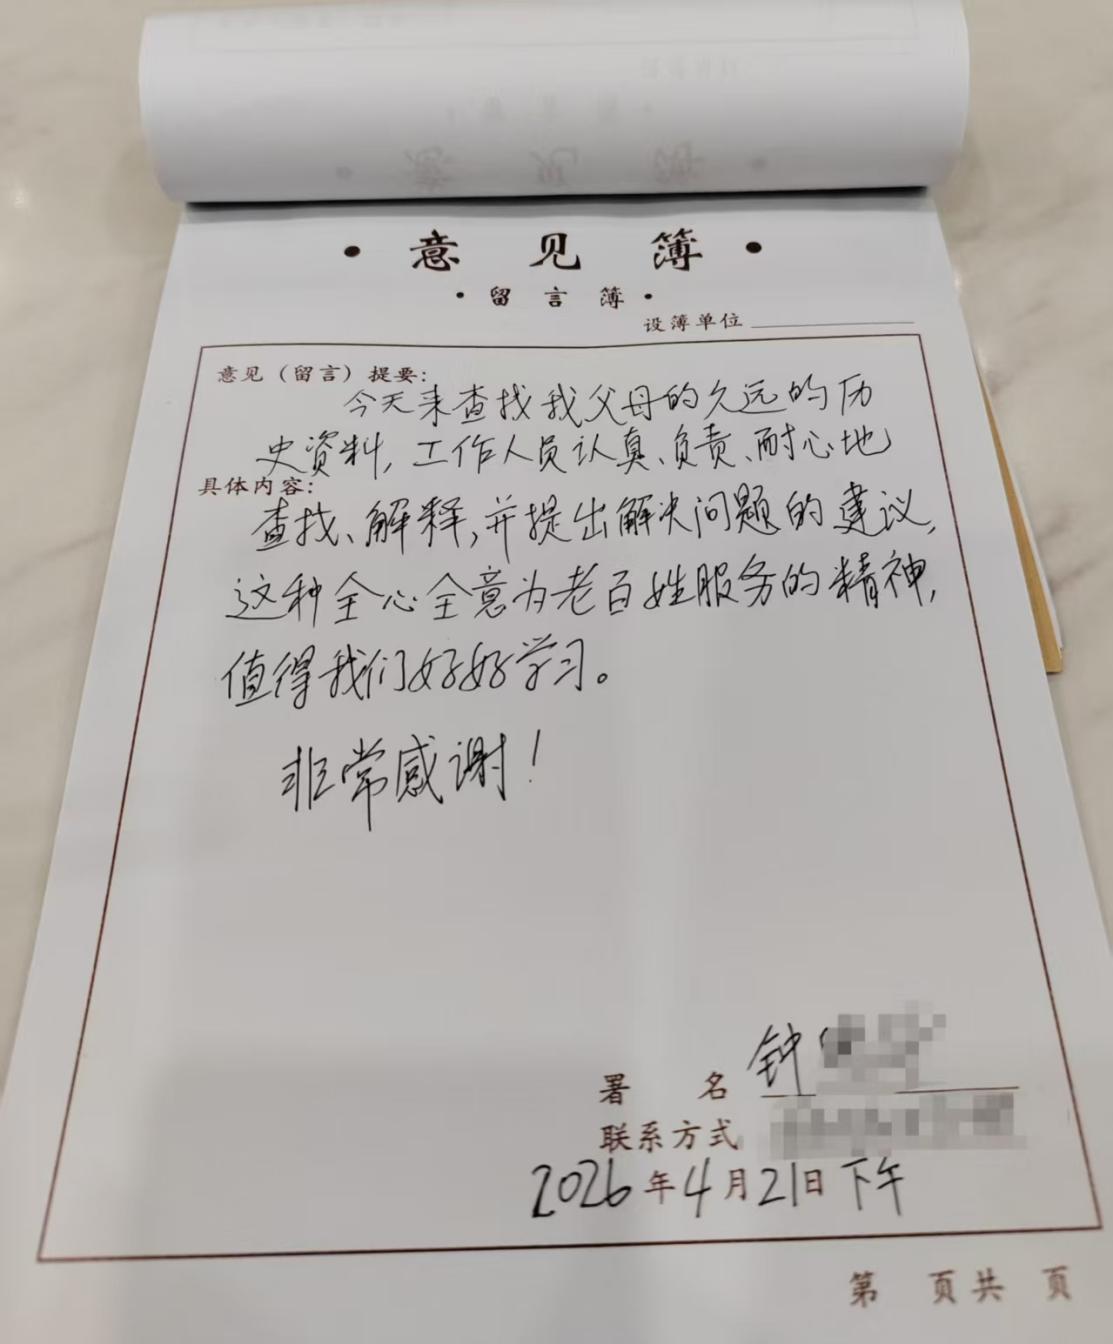 ·意见簿·
·留言簿·
设簿单位
意见（留言）提要：
今天来查找我父母的久远的历
史资料，工作人员认真、负责、耐心地
具体内容：
查找、解释，并提出解决问题的建议，
这种全心全意为老百姓服务的精神，
值得我们好好学习。
非常感谢！
署名 钟
联系方式
2026年4月21日下午
第 页共 页